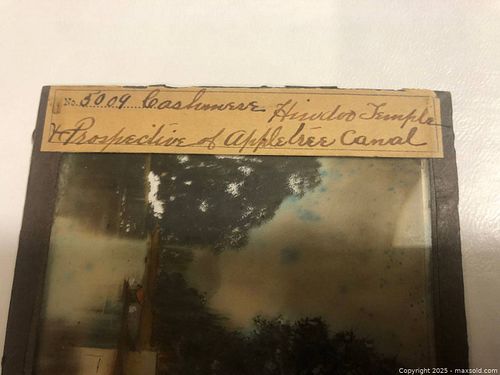 No. 5009 Cashmere Hindoo Temple
& Prospective of Appletree Canal
Copyright 2025 - maxsold.com